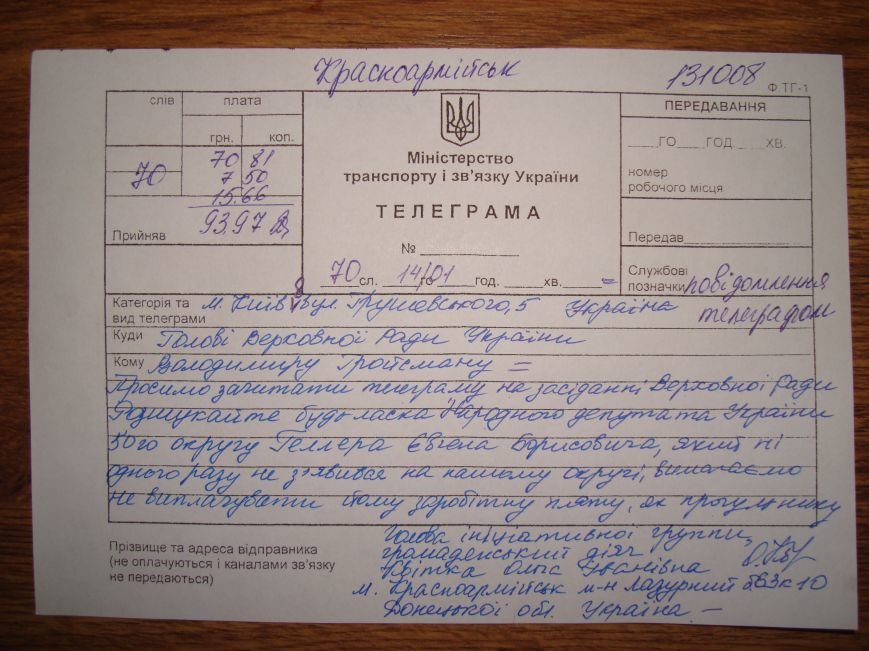 Красноармійськ 131008 Ф.ТГ-1
слів плата ПЕРЕДАВАННЯ
грн. коп.
70 81
70 7 50
15.66
93.97
Прийняв
Міністерство
транспорту і зв'язку України
ТЕЛЕГРАМА
№
70 сл. 14/01 го год. хв. =
ГО ГОД. ХВ.
номер
робочого місця
Передав
Службові
позначки повідомлення
телеграфом
Категорія та
вид телеграми м. Київ 8 вул. Грушевського, 5 Україна
Куди Голові Верховної Ради України
Кому Володимиру Гройсману =
Просимо зачитати телеграму на засіданні Верховної Ради
Розшукайте будь ласка Народного депутата України
50го округу Геллера Євгена Борисовича, який ні
одного разу не з'явився на нашому окрузі, вимагаємо
не виплачувати йому заробітну плату, як прогульнику
Голова ініціативної группи,
громаденський діяч
Прізвище та адреса відправника
(не оплачуються і каналами зв'язку
не передаються)
Квітка Ольга Іванівна
м. Красноармійськ м-н Лазурний б63к10
Донецької обл. Україна —